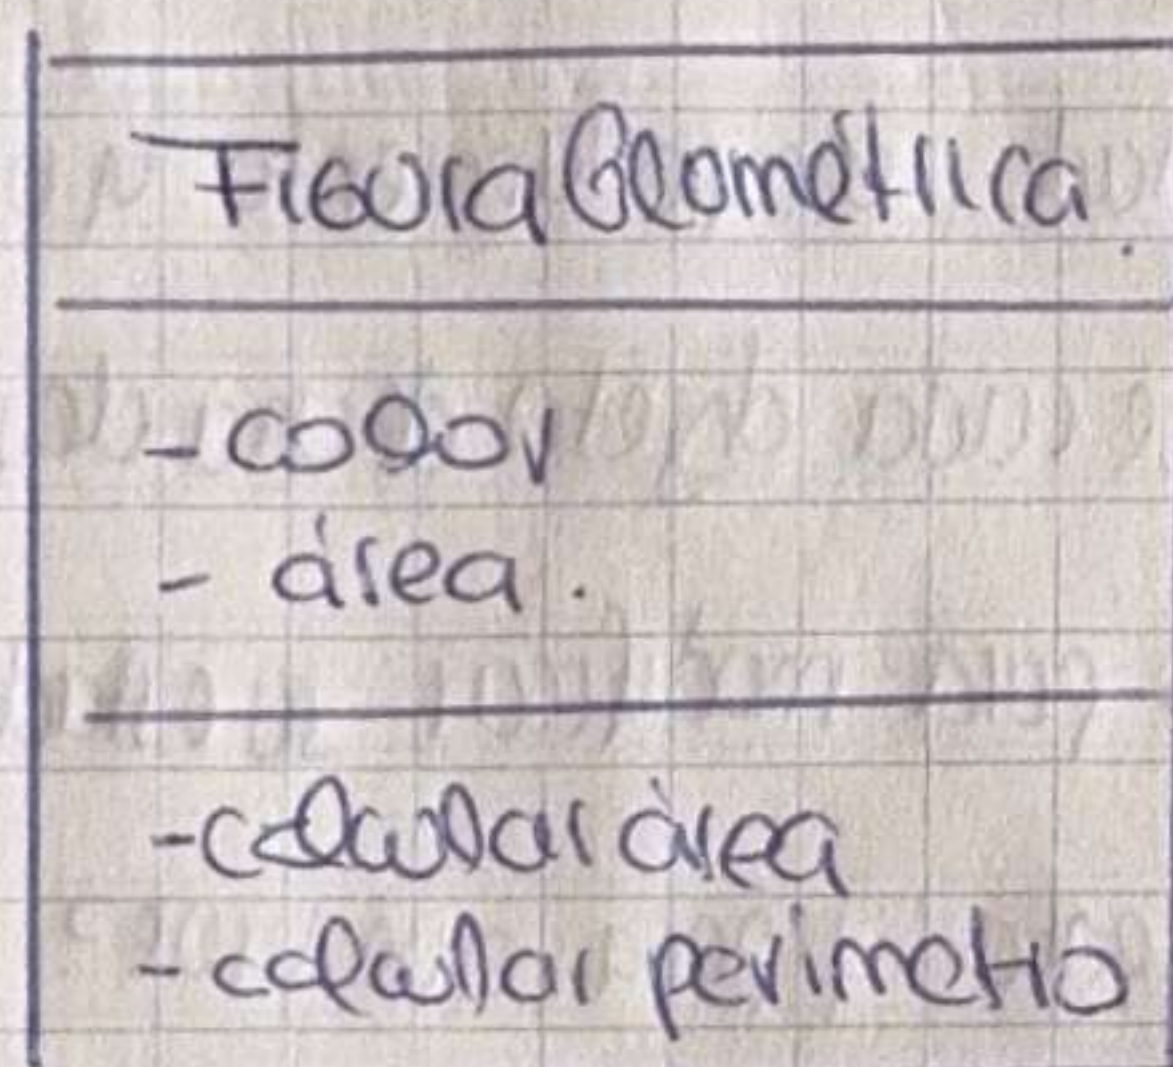 Figura Geométrica.
- color
- área.
- calcular área
- calcular perimetro